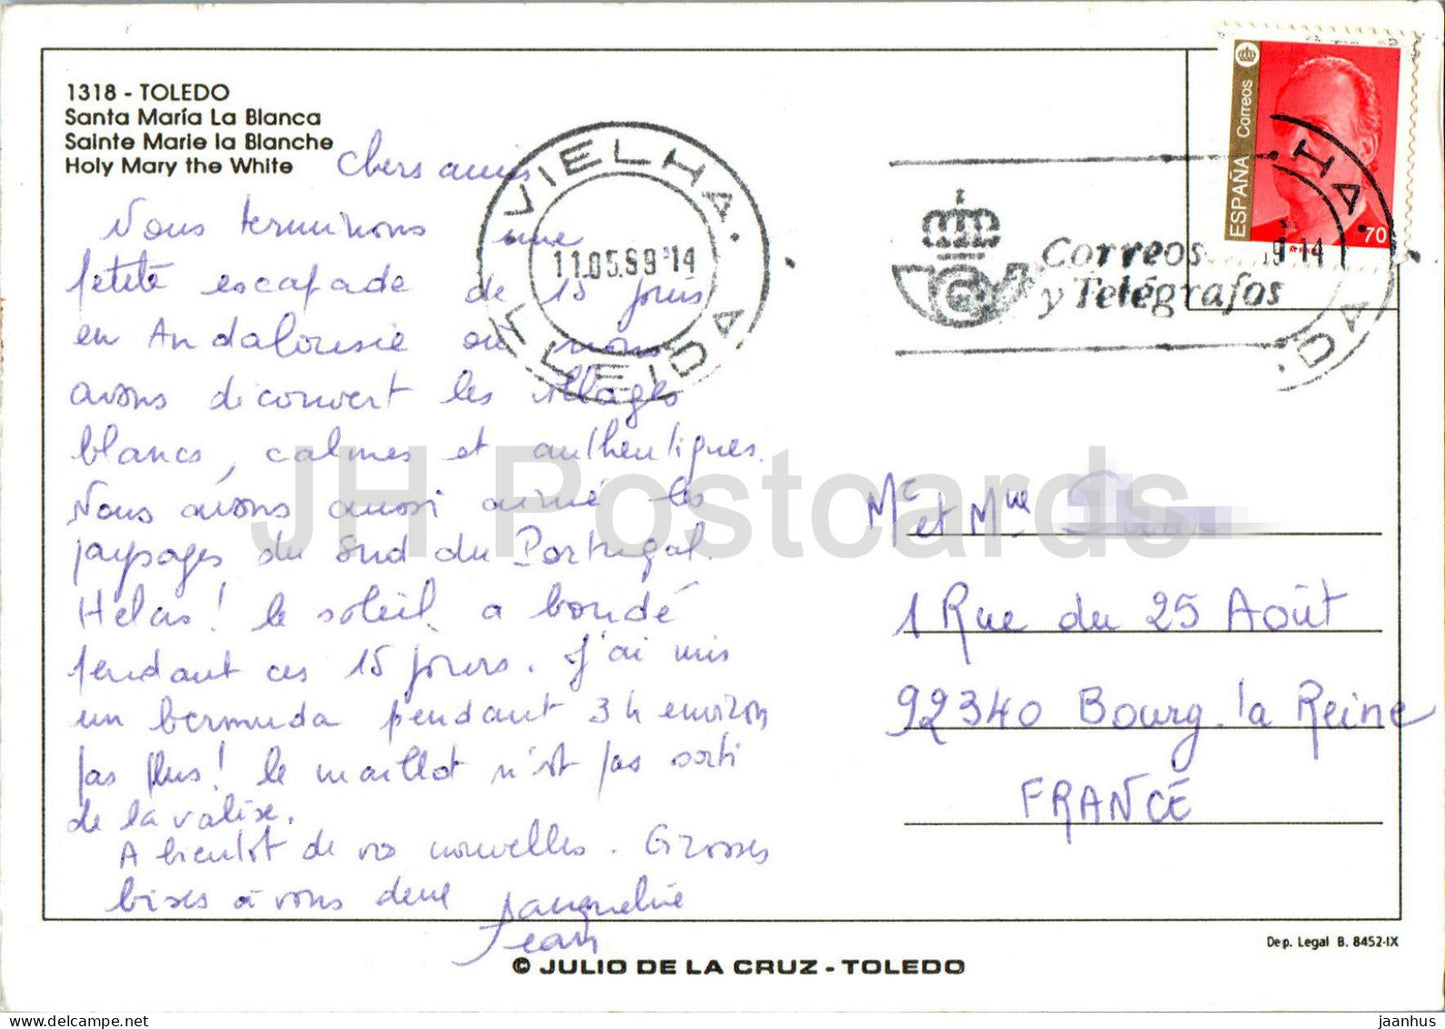 1318 - TOLEDO
Santa María La Blanca
Sainte Marie la Blanche
Holy Mary the White
Chers amis
Nous terminons une
petite escapade de 15 jours
en Andalousie où nous
avons découvert les villages
blancs, calmes et authentiques.
Nous avons aussi aimé les
paysages du Sud du Portugal.
Helas! le soleil a boudé
pendant ces 15 jours. J'ai mis
un bermuda pendant 3 h environ
pas plus! le maillot n'est pas sorti
de la valise.
A bientôt de vos nouvelles. Grosses
bises à vous deux Jacqueline
Jean
VIELHA
11.05.99 14
LLEIDA
Correos
y Telégrafos
VIELHA
9 14
LLEIDA
ESPAÑA Correos
70
Mr et Mme
1 Rue du 25 Août
92340 Bourg-la Reine
FRANCE
Dep. Legal B. 8452-IX
© JULIO DE LA CRUZ - TOLEDO
JH Postcards
www.delcampe.net
jaanhus